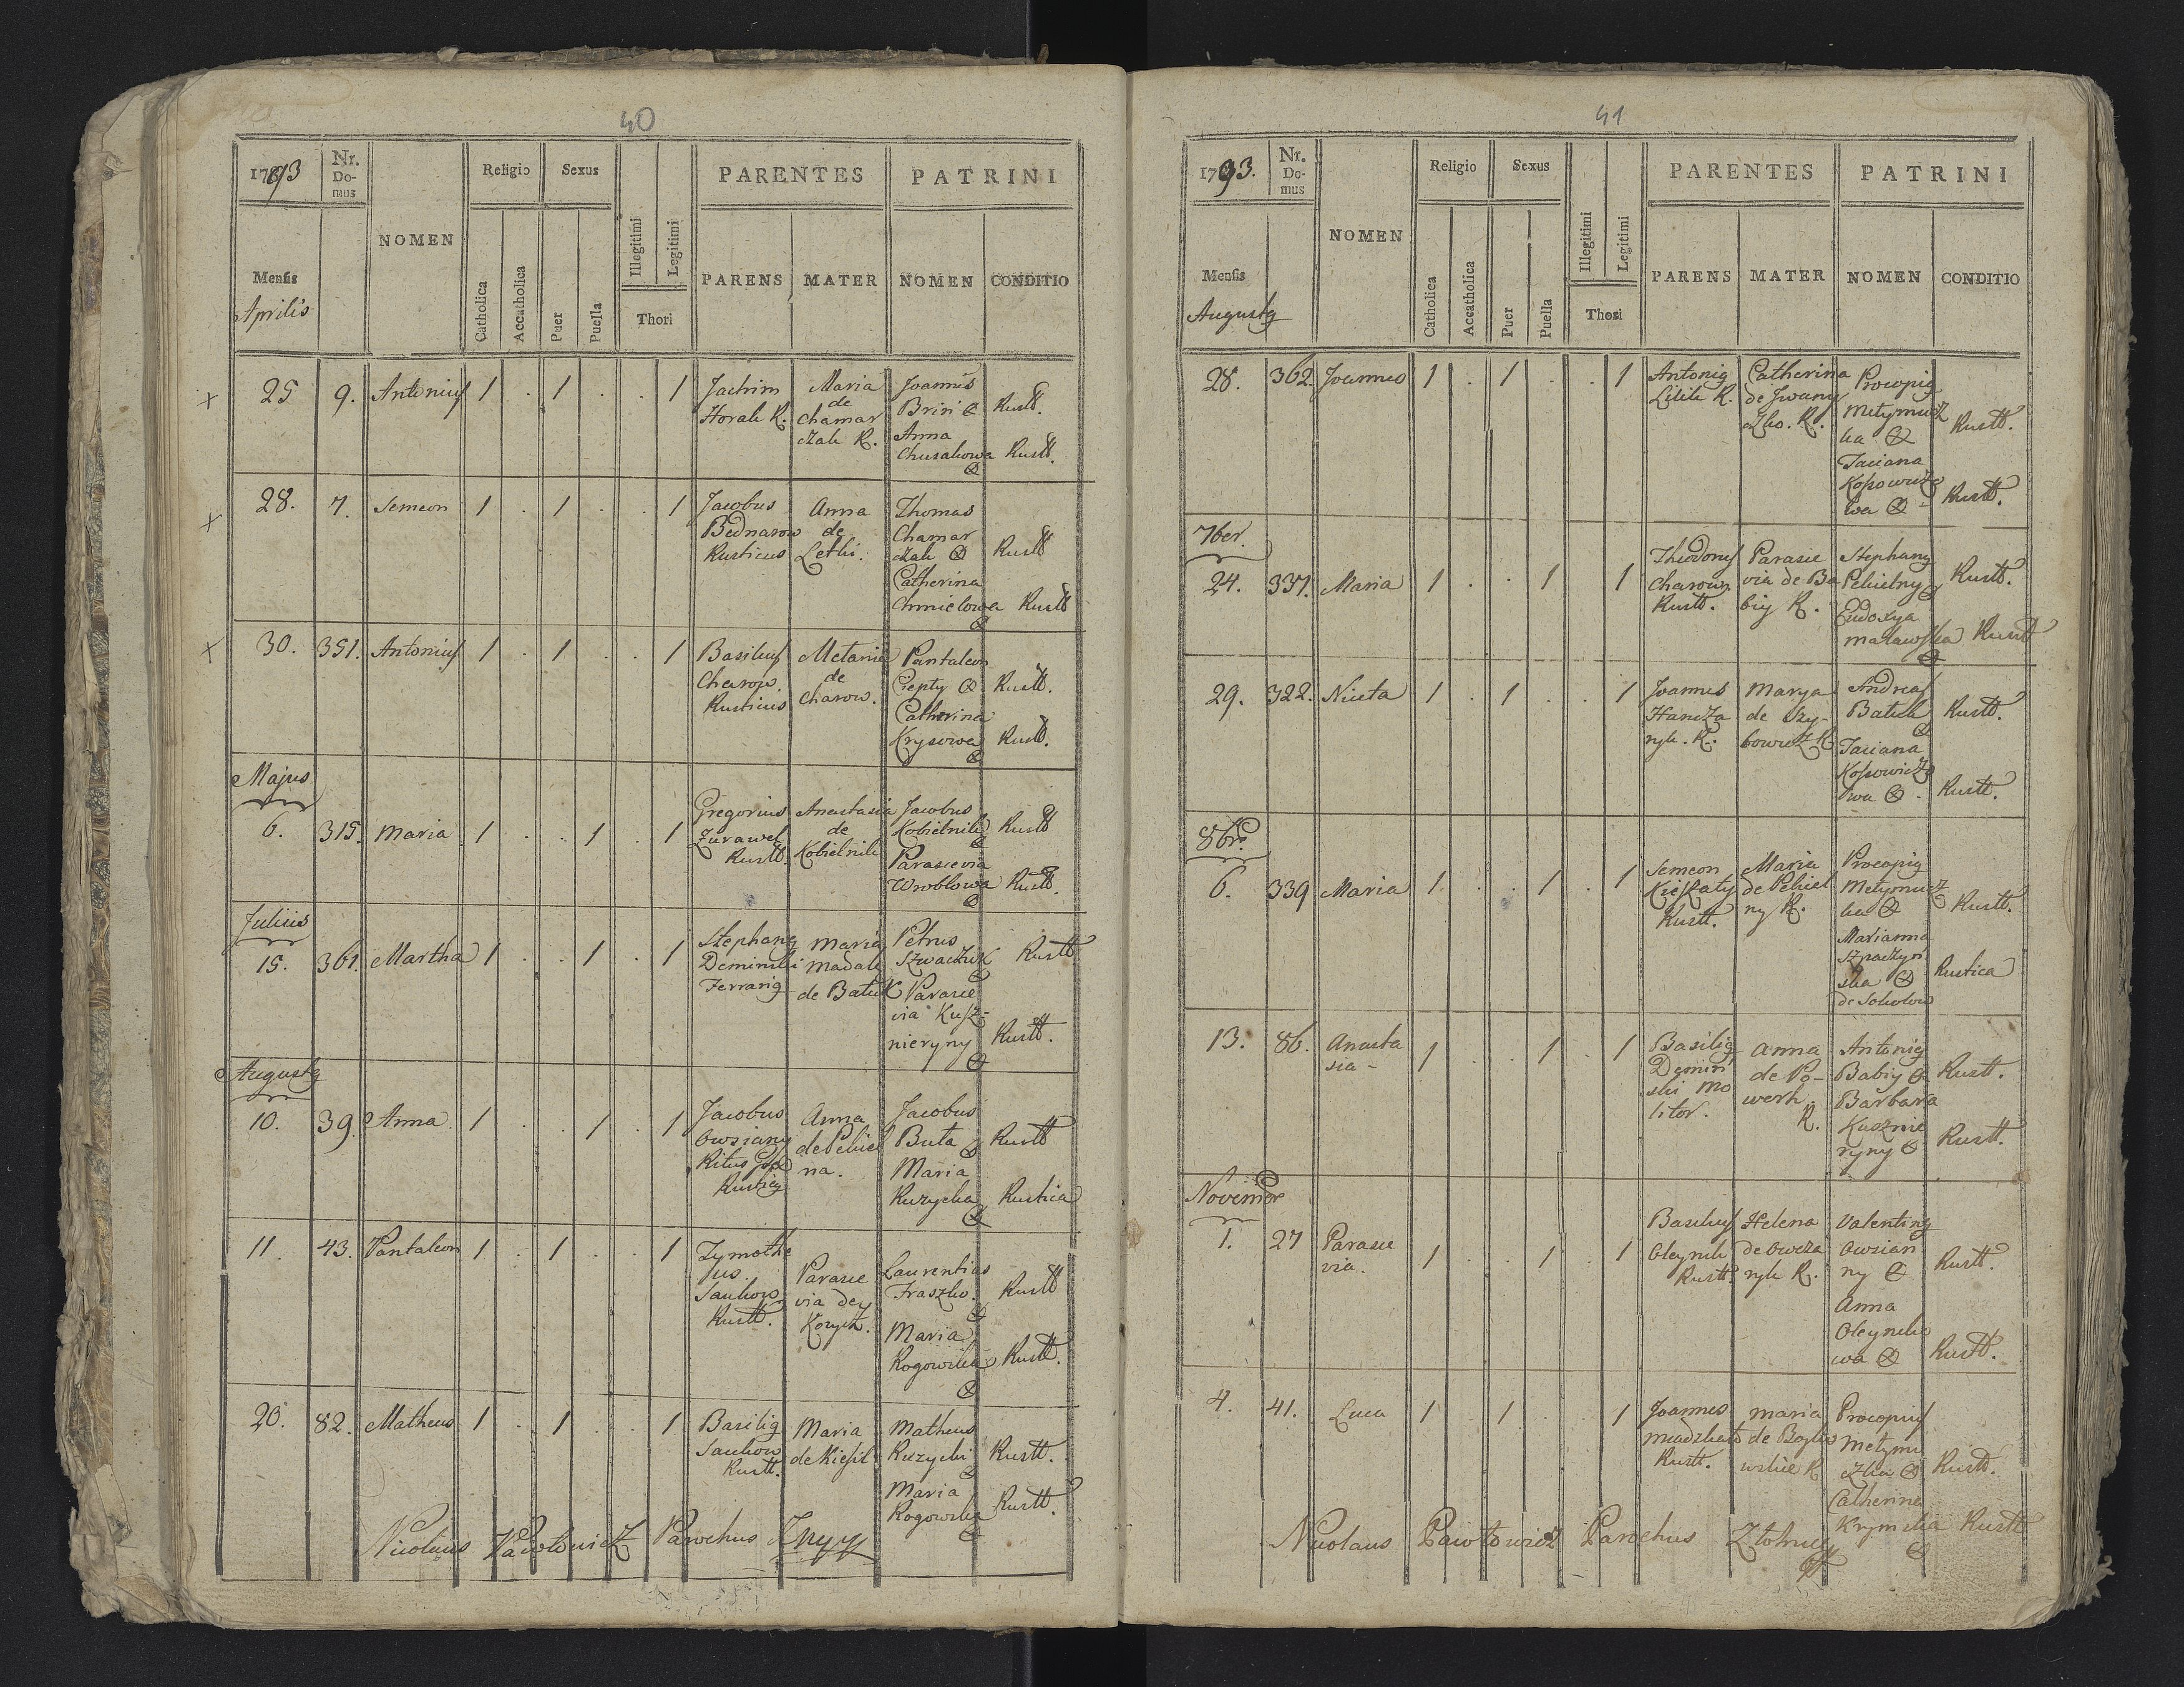 40
1793
Nr. Domus
NOMEN
Religio
Sexus
PARENTES
PATRINI
Mensis
Aprilis
Catholica
Accatholica
Puer
Puella
Illegitimi
Legitimi
Thori
PARENS
MATER
NOMEN
CONDITIO
x 25 9. Antonius 1 . 1 . . 1
Jachim
Horak R.
Maria
de
Chamar
czak R.
Joannes
Anna
Chusakowa
Rustt.
Rustt.
x 28. 7. Semeon 1 . 1 . . 1
Jacobus
Bednarow
Rusticus
Anna
de
Thomas
Chamar
czak
Catherina
Chmielowa
Rustt
Rustt
x 30. 351. Antonius 1 . 1 . . 1
Basilius
Charow.
Rusticus
Melania
de
Charow.
Pantaleon
Ciepły
Catherina
Krysowa
Rustt.
Rustt.
Majus
6. 315. Maria 1 . . 1 . 1
Gregorius
Zurawel
Rustt.
Anastasia
de
Kobielnik
Jacobus
Kobielnik
Parascevia
Wroblowa
Rustt
Rustt.
Julius
15. 361. Martha 1 . . 1 . 1
Stephang
Deminski
Ferrarig
Maria
Madale
de Batuk
Petrus
Szwaczuk
Parasce
via Kusz-
nieryny
Rustt
Rustt.
Augustg
10. 39. Anna 1 . . 1 . 1
Jacobus
Owsiany
Ritus
Rusticg
Anna
de Pekiel
na.
Jacobus
Buta
Maria
Ruzycka
Rustt
Rustica
11. 43. Pantaleon 1 . 1 . . 1
Tymothe
us
Saukow
Rustt.
Parasce
via de
Laurentius
Fraszko.
Maria
Rogowska
Rustt
Rustt.
20. 82. Matheus 1 . 1 . . 1
Basilig
Saukow
Rustt.
Maria
de Kiesil
Matheus
Ruzycki
Maria
Rogowska
Rustt.
Rustt.
Nicolaus Pawłowicz Parochus
41
1793.
Nr. Domus
NOMEN
Religio
Sexus
PARENTES
PATRINI
Mensis
Augustg
Catholica
Accatholica
Puer
Puella
Illegitimi
Legitimi
Thori
PARENS
MATER
NOMEN
CONDITIO
28. 362. Joannes 1 . 1 . . 1
Antonig
Lilik R.
Catherina
de Iwany
szko. R.
Procopig
Metymucz
ka
Taciana
Kossowicze
wa
Rustt.
Rustt.
7ber.
24. 337. Maria 1 . . 1 1
Theodorus
Charow.
Rustt.
Parasce
via de Ba
biy R.
Stephang
Pekielny
Eudoxya
Maławska
Rustt.
Rustt
29. 322. Niceta 1 . 1 . . 1
Joannes
Hancza
ryk. R.
Marya
de Szy-
bowicz R
Andreas
Batuk
Taciana
Kossowicz
wa
Rustt.
Rustt.
8bris
6. 339 Maria 1 . . 1 . 1
Semeon
Kieszaty
Rustt.
Maria
de Pekiel
ny R.
Procopig
Metymucz
ka
Marianna
Szpaczyn
ska
de Sokołow
Rustt.
Rustica
13. 86. Anasta
sia - 1 . . 1 . 1
Basilig
Demin
ski mo
litor.
Anna
de Po-
werh.
R.
Antonig
Babiy
Barbara
Kusznie
ryny
Rustt.
Rustt.
November
1. 27 Parasce
via. 1 . . 1 . 1
Basilius
Oleynik
Rustt.
Helena
de Owcza
ryk R.
Valenting
Owsian
ny
Anna
Oleyniko
wa
Rustt.
Rustt.
4. 41. Luca 1 1 . . 1
Joannes
Rustt.
Maria
Procopius
Metymu
czka
Catherina
Krymska
Rustt.
Rustt
Nicolaus Pawłowicz Parochus